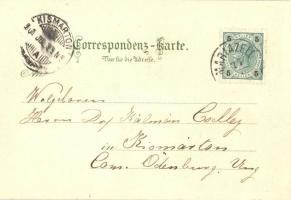 KISMARTON
Correspondenz-Karte.
Nur für die Adresse.
MARIAZELL
5 5
5 5
Wolgeboren
Herrn Dr Kálmán
in Kismárton
Com. Ödenburg, Ung